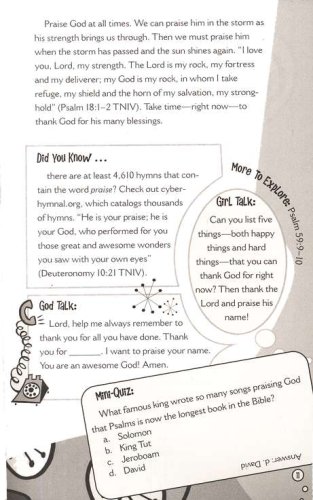 Praise God at all times. We can praise him in the storm as
his strength brings us through. Then we must praise him
when the storm has passed and the sun shines again. "I love
you, Lord, my strength. The Lord is my rock, my fortress
and my deliverer; my God is my rock, in whom I take
refuge, my shield and the horn of my salvation, my strong-
hold" (Psalm 18:1–2 TNIV). Take time—right now—to
thank God for his many blessings.
Did You Know ...
there are at least 4,610 hymns that con-
tain the word praise? Check out cyber-
hymnal.org, which catalogs thousands
of hymns. "He is your praise; he is
your God, who performed for you
those great and awesome wonders
you saw with your own eyes"
(Deuteronomy 10:21 TNIV).
More To Explore: Psalm 59:9–10
Girl Talk:
Can you list five
things—both happy
things and hard
things—that you can
thank God for right
now? Then thank the
Lord and praise his
name!
God Talk:
Lord, help me always remember to
thank you for all you have done. Thank
you for ______. I want to praise your name.
You are an awesome God! Amen.
Mini-Quiz:
What famous king wrote so many songs praising God
that Psalms is now the longest book in the Bible?
a. Solomon
b. King Tut
c. Jeroboam
d. David
Answer: d. David